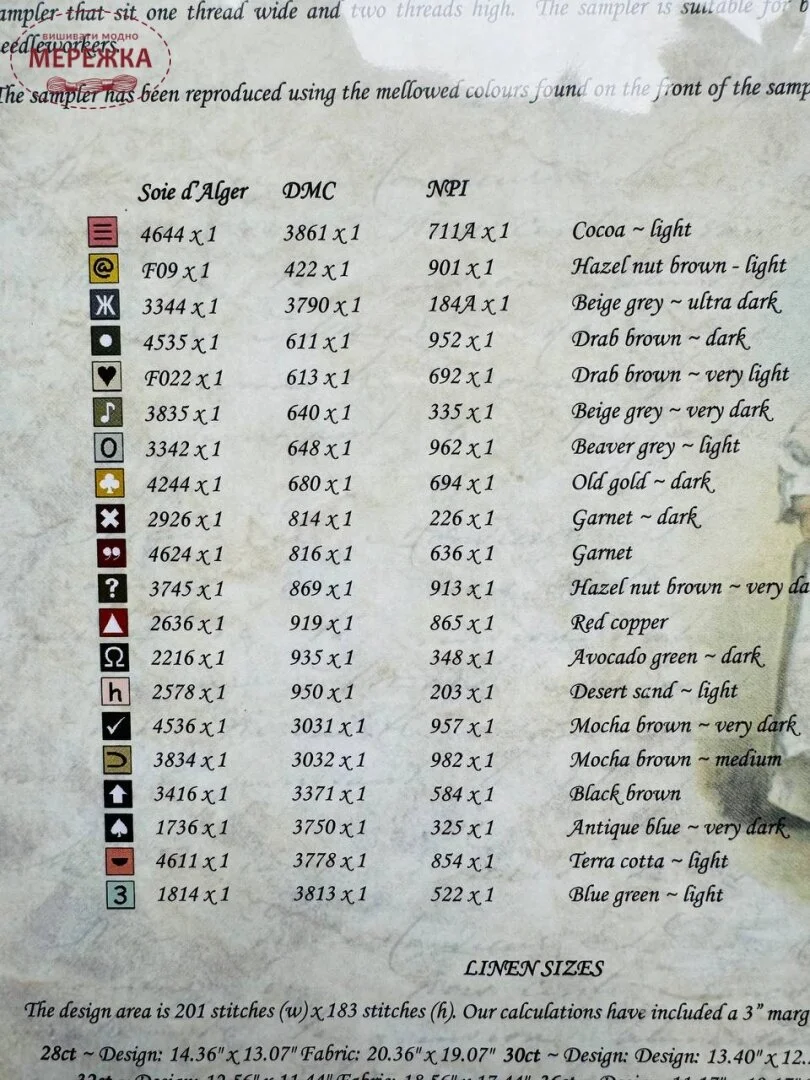 ampler that sit one thread wide and two threads high. The sampler is suitable for b
eedleworkers.
вишивати модно
МЕРЕЖКА
The sampler has been reproduced using the mellowed colours found on the front of the samp
Soie d'Alger DMC NPI
4644 x 1 3861 x 1 711A x 1 Cocoa ~ light
@ F09 x 1 422 x 1 901 x 1 Hazel nut brown - light
Ж 3344 x 1 3790 x 1 184A x 1 Beige grey ~ ultra dark
4535 x 1 611 x 1 952 x 1 Drab brown ~ dark
♥ F022 x 1 613 x 1 692 x 1 Drab brown ~ very light
♪ 3835 x 1 640 x 1 335 x 1 Beige grey ~ very dark
0 3342 x 1 648 x 1 962 x 1 Beaver grey ~ light
♣ 4244 x 1 680 x 1 694 x 1 Old gold ~ dark
✖ 2926 x 1 814 x 1 226 x 1 Garnet ~ dark
❟❟ 4624 x 1 816 x 1 636 x 1 Garnet
? 3745 x 1 869 x 1 913 x 1 Hazel nut brown ~ very da
▲ 2636 x 1 919 x 1 865 x 1 Red copper
Ω 2216 x 1 935 x 1 348 x 1 Avocado green ~ dark
h 2578 x 1 950 x 1 203 x 1 Desert sand ~ light
✓ 4536 x 1 3031 x 1 957 x 1 Mocha brown ~ very dark
⊃ 3834 x 1 3032 x 1 982 x 1 Mocha brown ~ medium
⬆ 3416 x 1 3371 x 1 584 x 1 Black brown
♠ 1736 x 1 3750 x 1 325 x 1 Antique blue ~ very dark
4611 x 1 3778 x 1 854 x 1 Terra cotta ~ light
3 1814 x 1 3813 x 1 522 x 1 Blue green ~ light
LINEN SIZES
The design area is 201 stitches (w) x 183 stitches (h). Our calculations have included a 3" marg
28ct ~ Design: 14.36" x 13.07" Fabric: 20.36" x 19.07" 30ct ~ Design: Design: 13.40" x 12.